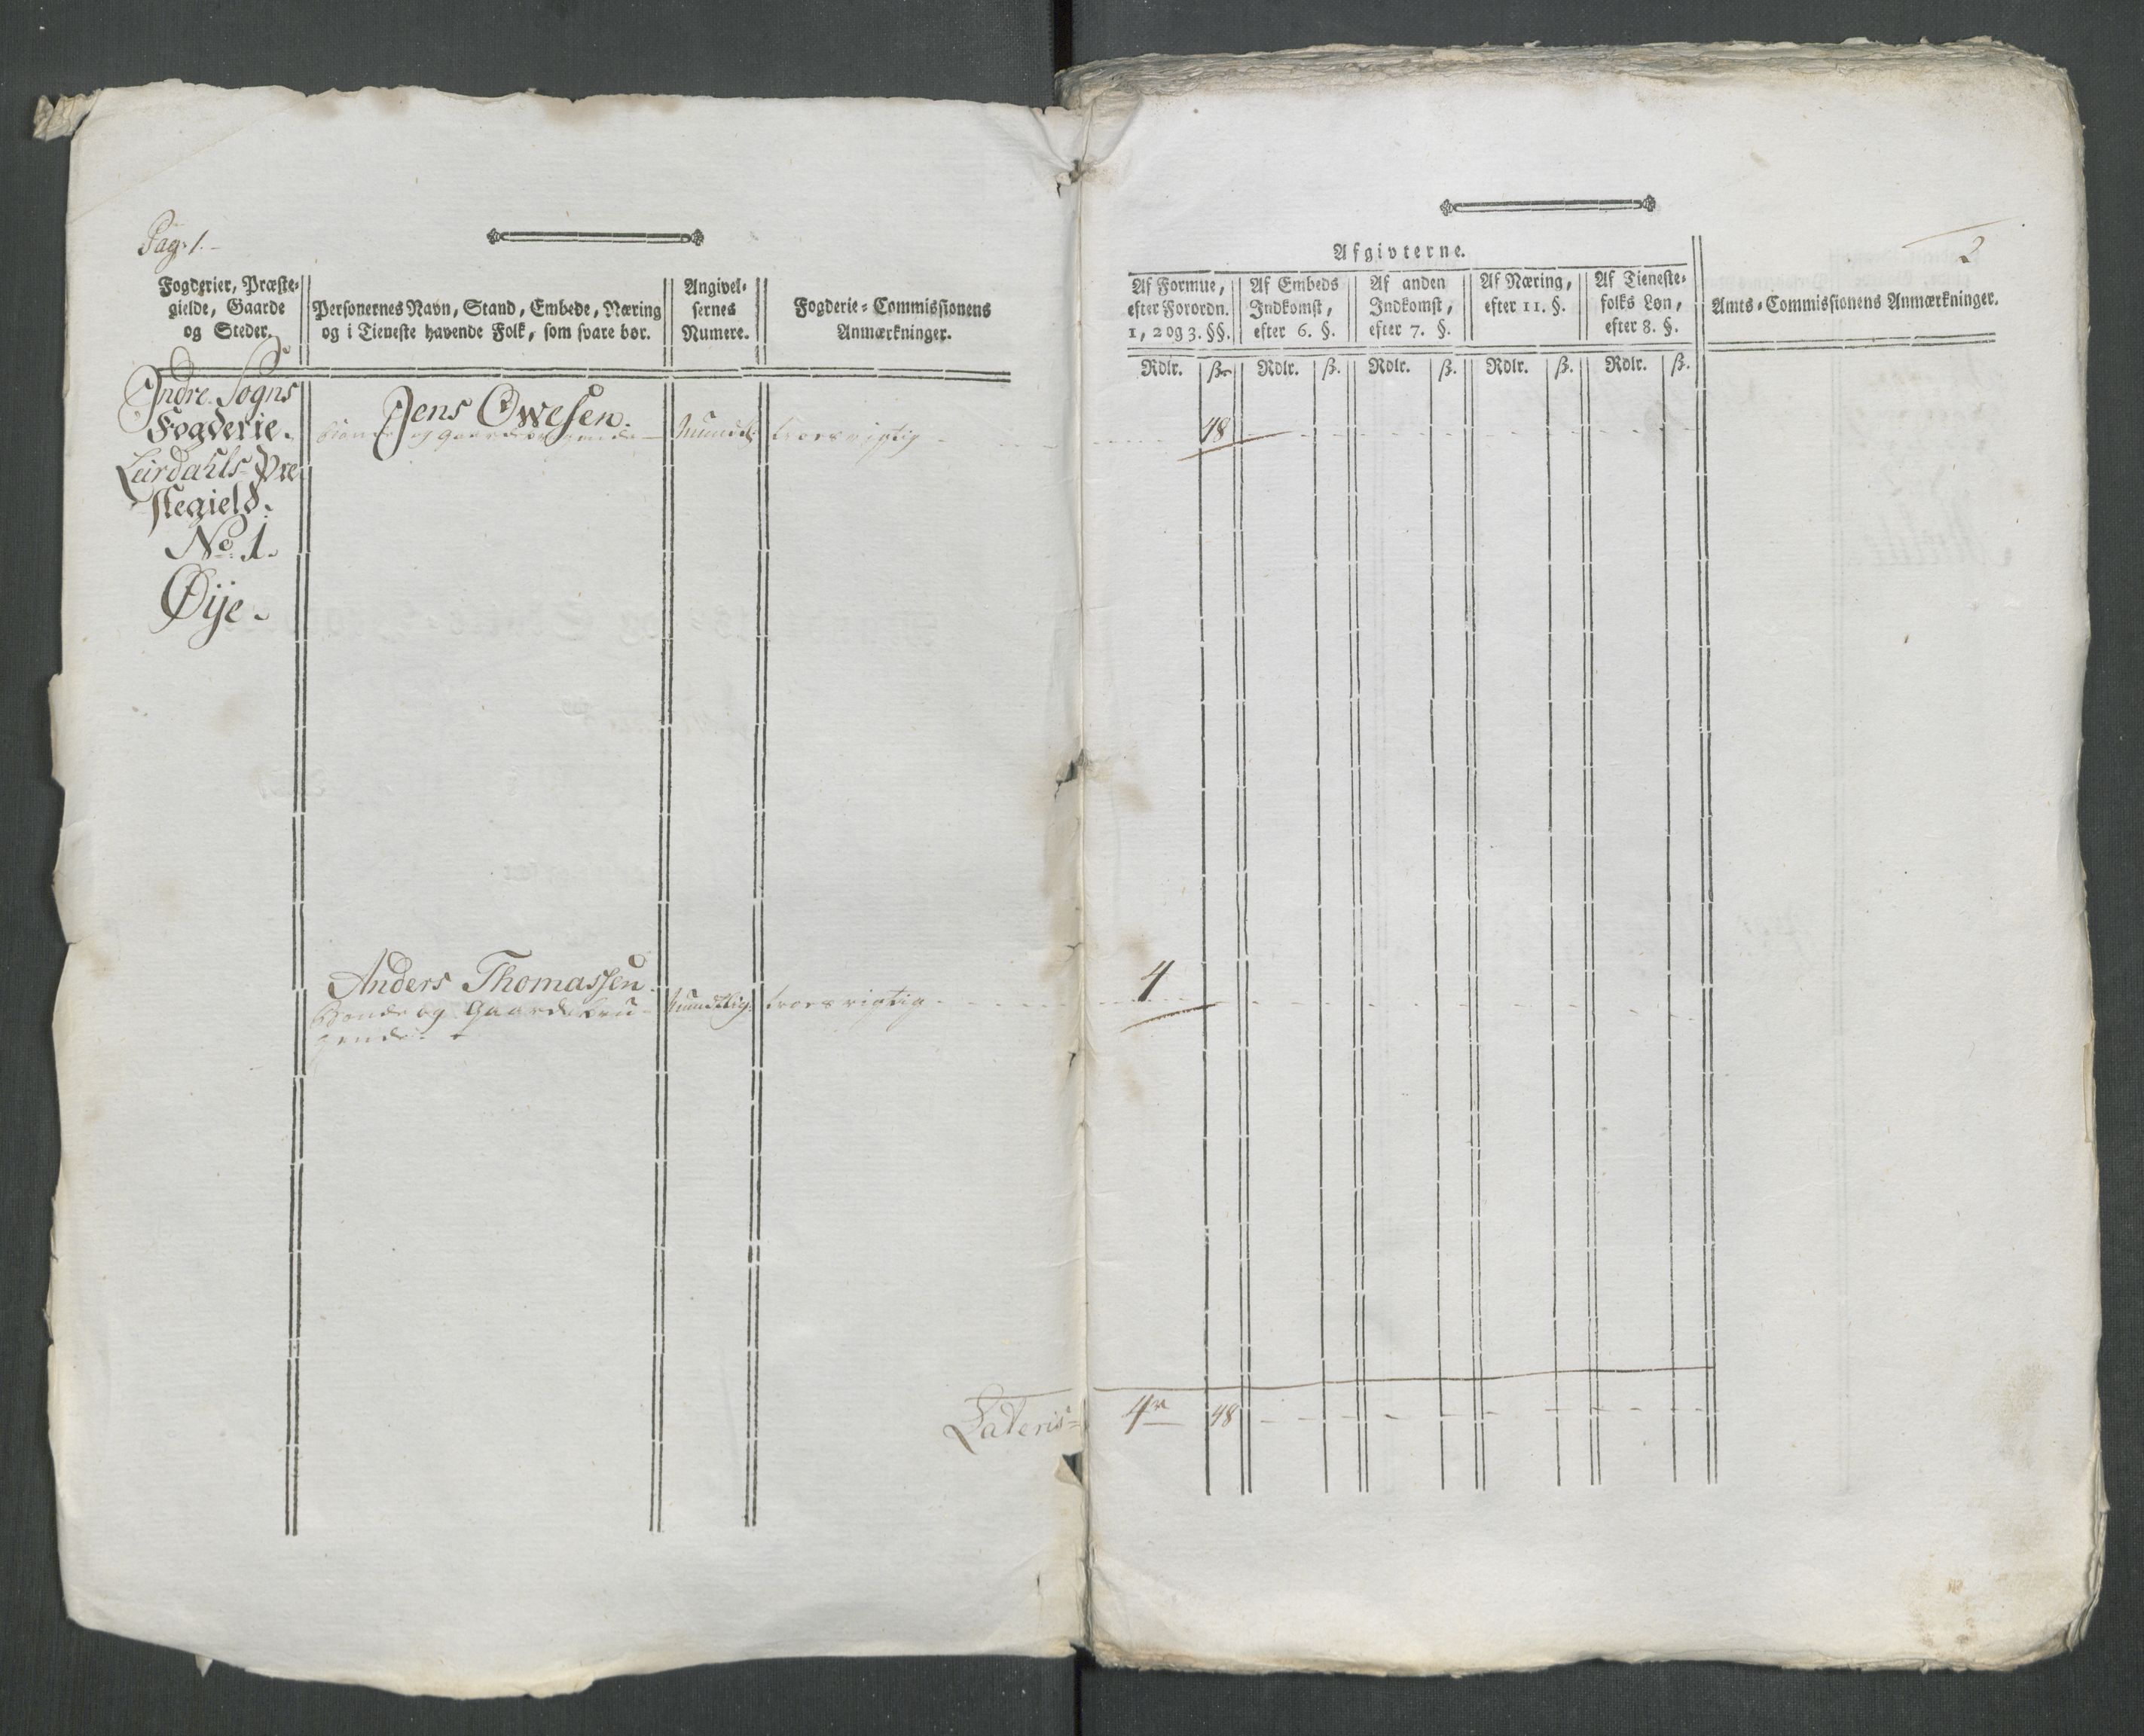 Pag: 1.
Fogderier, Præste-
gielde, Gaarde
og Steder.
Personernes Navn, Stand, Embede, Næring
og i Tieneste havende Folk, som svare bør.
Angivel-
sernes
Numere.
Fogderie-Commissionens
Anmærkninger.
Indre Sogns
Fogderie.
Leirdahls Præ
stegield.
No. 1.
Øije.
Jens Owesen.
Bonde og Gaardbrugende
Mundtl:
troes rigtig
Anders Thomassen
Bonde og Gaardbru-
gende.
Mundtlig:
troes rigtig
Lateris
2
Afgivterne.
Af Formue,
efter Forordn.
1, 2 og 3. §§.
Af Embeds
Indkomst,
efter 6. §.
Af anden
Indkomst,
efter 7. §.
Af Næring,
efter 11. §.
Af Tieneste-
folks Løn,
efter 8. §.
Amts-Commissionens Anmærkninger.
Rdlr. ß. Rdlr. ß. Rdlr. ß. Rdlr. ß. Rdlr. ß.
48
4
4 48